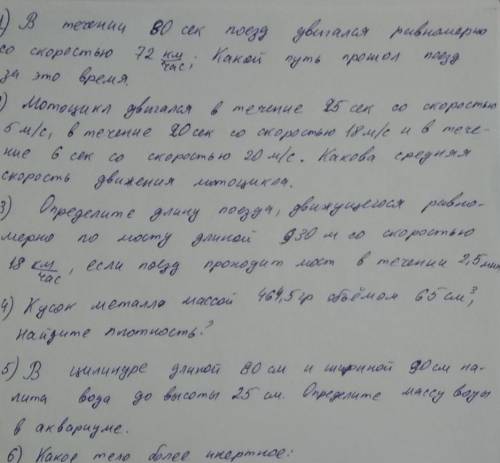 1) В течении 80 сек поезд двигался равномерно
со скоростью 72 км/час; Какой путь прошол поезд
за это время.
2) Мотоцикл двигался в течение 25 сек со скоростью
5 м/с, в течение 20 сек со скоростью 18 м/с и в тече-
ние 6 сек со скоростью 20 м/с. Какова средняя
скорость движения мотоцикла.
3) Определите длину поезда, движущегося равно-
мерно по мосту длиной 930 м со скоростью
18 км/час, если поезд проходит мост в течении 2,5 мин
4) Кусок металла массой 464,5 гр объёмом 65 см³,
найдите плотность?
5) В цилиндре длиной 80 см и шириной 90 см на-
лита вода до высоты 25 см. Определите массу воды
в аквариуме.
6) Какое тело более инертное: